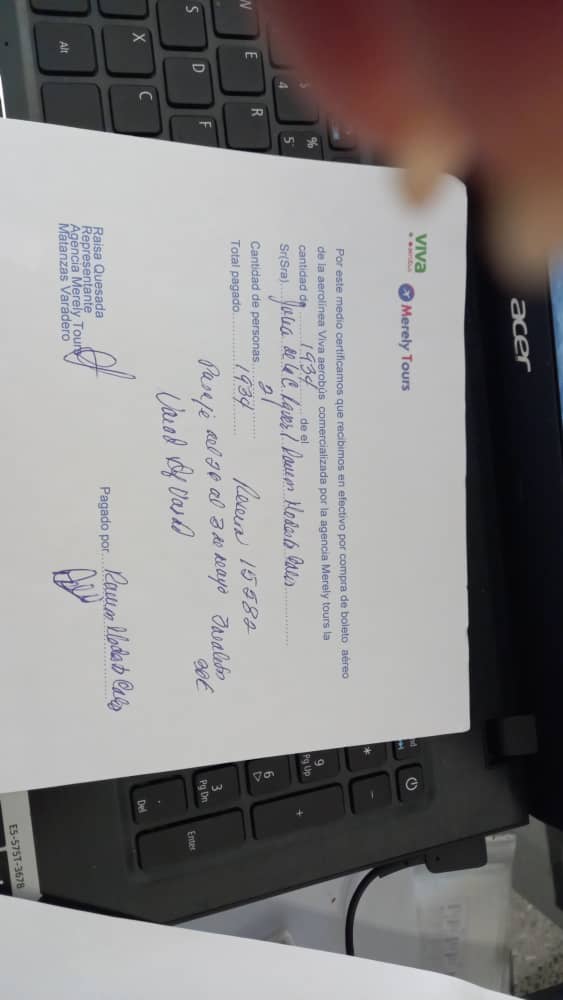 viva aerobus
Merely Tours
Por este medio certificamos que recibimos en efectivo por compra de boleto aéreo
de la aerolínea Viva aerobús comercializada por la agencia Merely tours la
cantidad de 1934 de el
Sr(Sra). Ramon Modesto
Cantidad de personas 2
Total pagado 1934
15582
Pasaje del 26 al 3 de mayo
Raisa Quesada
Representante
Agencia Merely Tours
Matanzas Varadero
Pagado por Ramon Modesto
acer
E5-575T-3678
Alt
X
C
S
D
F
N
E
R
4
%
5
9
Pg Up
6
3
Pg Dn
*
-
+
.
Del
Enter